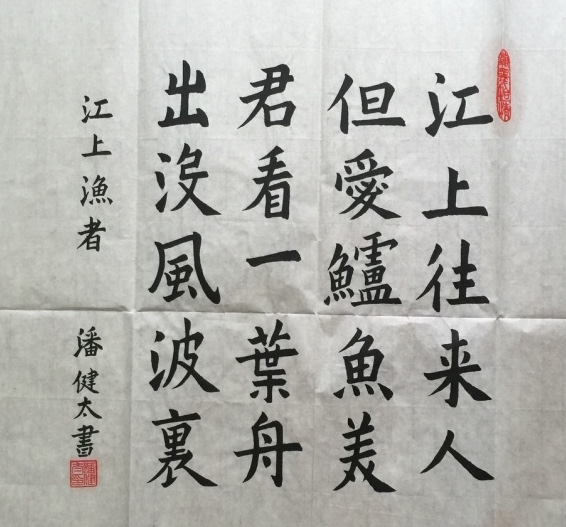 江上往来人
但愛鱸魚美
君看一葉舟
出没風波裏
江上漁者
潘健太書